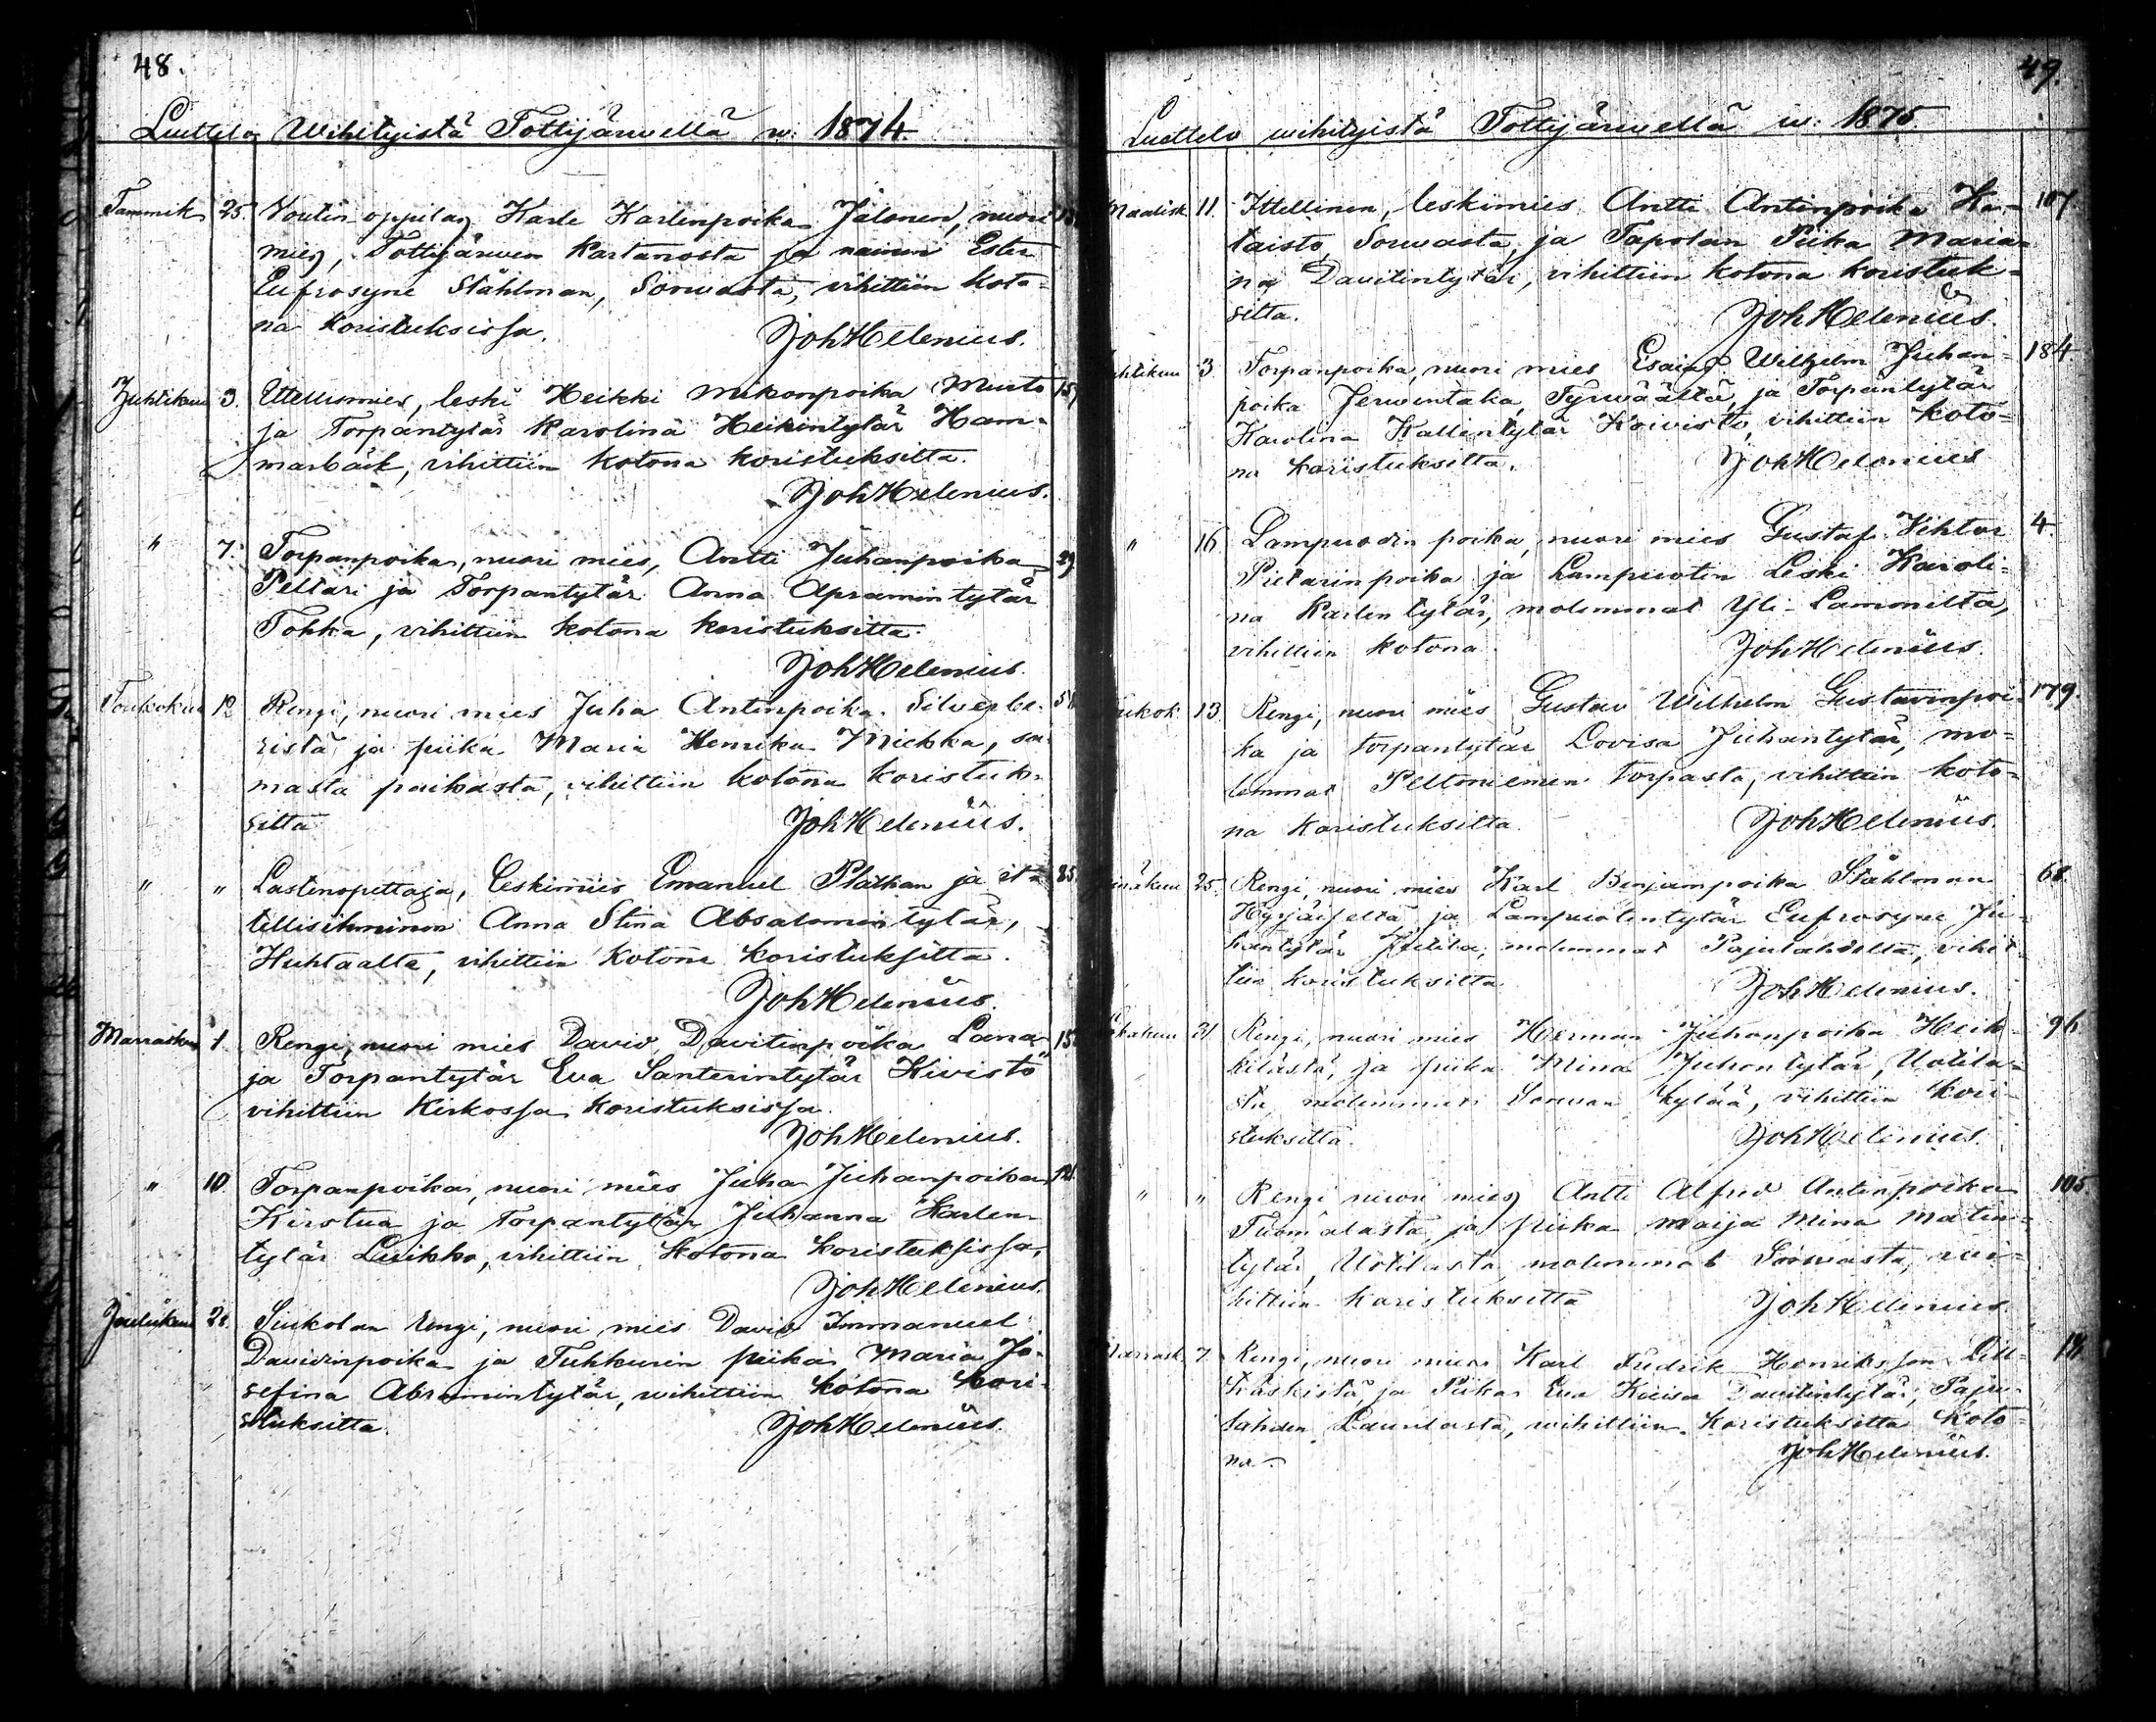 48.
Luettelo Wihityistä Tottijärwellä w: 1874.
Tammik 25. Voutin oppilas Karle Karlenpoika Jälonen, nuori
mies, Tottijärwen Kartanosta ja nainen Ester
Eufrosyne Ståhlman, Sorwasta, vihittiin koto-
na koristuksissa.
Joh Helenius.
Huhtikuu 3. Ittellismies, leski Heikki Mikonpoika Musto
ja Torpantytär Karolina Heikintytär Ham-
marbäck, vihittiin kotona koristuksitta.
Joh Helenius.
" 7. Torpanpoika, nuori mies, Antti Juhanpoika 29
Peltari ja Torpantytär Anna Apramintytär
Tohka, vihittiin kotona koristuksitta.
Joh Helenius.
Toukokuu 12 Rengi, nuori mies Juha Antinpoika Silverbe-
ristä ja piika Maria Henrika Miekka, sa-
masta paikasta, vihittiin kotona koristuk-
sitta
Joh Helenius.
" " Lastenopettaja, Leskimies Emanuel Plathan ja it- 85
tellisihminen Anna Stina Absalomintytär,
Huhtaalta, vihittiin kotona koristuksitta.
Joh Helenius.
Marrasku 1 Rengi, nuori mies David Davitinpoika Lana
ja Torpantytär Eva Santerintytär Kivistö
vihittiin Kirkossa koristuksissa.
Joh Helenius.
" 10. Torpanpoika, nuori mies Juha Juhanpoika
Kirstua ja Torpantytär Juhanna Karlen-
tytär Luikko, vihittiin kotona koristuksissa,
Joh Helenius.
Joulukuu 28. Siukolan Rengi, nuori mies David Immanuel
Davidinpoika ja Tuhkurin piika Maria Jo-
sefina Abramintytär, wihittiin kotona kori-
stuksitta.
Joh Helenius.
49.
Luettelo wihityistä Tottijärwellä w: 1875.
Maalisk 11. Ittellinen, leskimies Antti Antinpoika Ka- 107
taisto, Sorwasta, ja Tapolan Piika Maria-
na Davitintytär, vihittiin kotona koristuk-
sitta.
Joh Helenius.
Huhtikuu 3. Torpanpoika, nuori mies Esaias Wilhelm Juhan- 184
poika Jerwentaka, Tyrwäästä, ja Torpantytär
Karolina Kallentytär Koivisto, vihittiin koto-
na koristuksitta.
Joh Helenius
" 16 Lampuodin poika, nuori mies Gustaf Vihtor 4
Pietarinpoika ja Lampuotin Leski Karoli-
na Karlentytär, molemmat Yli-Lammilta,
vihittiin kotona.
Joh Helenius.
Toukok 13. Rengi, nuori mies Gustav Wilhelm Gustavinpoi- 179.
ka ja torpantytär Lovisa Juhantytär, mo-
lemmat Peltoniemen torpasta, vihittiin koto-
na koristuksitta.
Joh Helenius.
Heinäkuu 25. Rengi, nuori mies Karl Benjampoika Ståhlman 68.
ja Lampuotintytär Eufrosyne Ju-
hantytär Jutila, molemmat Pajulahdelta, vihit-
tiin koristuksitta
Joh Helenius.
Lokakuu 31 Rengi, nuori mies Herman Juhanpoika Heik- 96
kilästä, ja piika Mina Juhontytär, Uotila-
sta molemmat Sorwan kylää, vihittiin kori-
stuksitta.
Joh Helenius.
" " Rengi nuori mies Antti Alfred Antinpoika 105
Tuomalasta, ja piika Maija Mina Matin-
tytär, Uotilasta, molemmat Sorwasta, wi-
hittiin koristuksitta
Joh Helenius
Marrask 7. Rengi, nuori mies Karl Fredrik Henriksson Lill-
ja Piika Eva Davitintytär, Paju-
lahden Laurilasta, wihittiin koristuksitta koto-
na.
Joh Helenius.